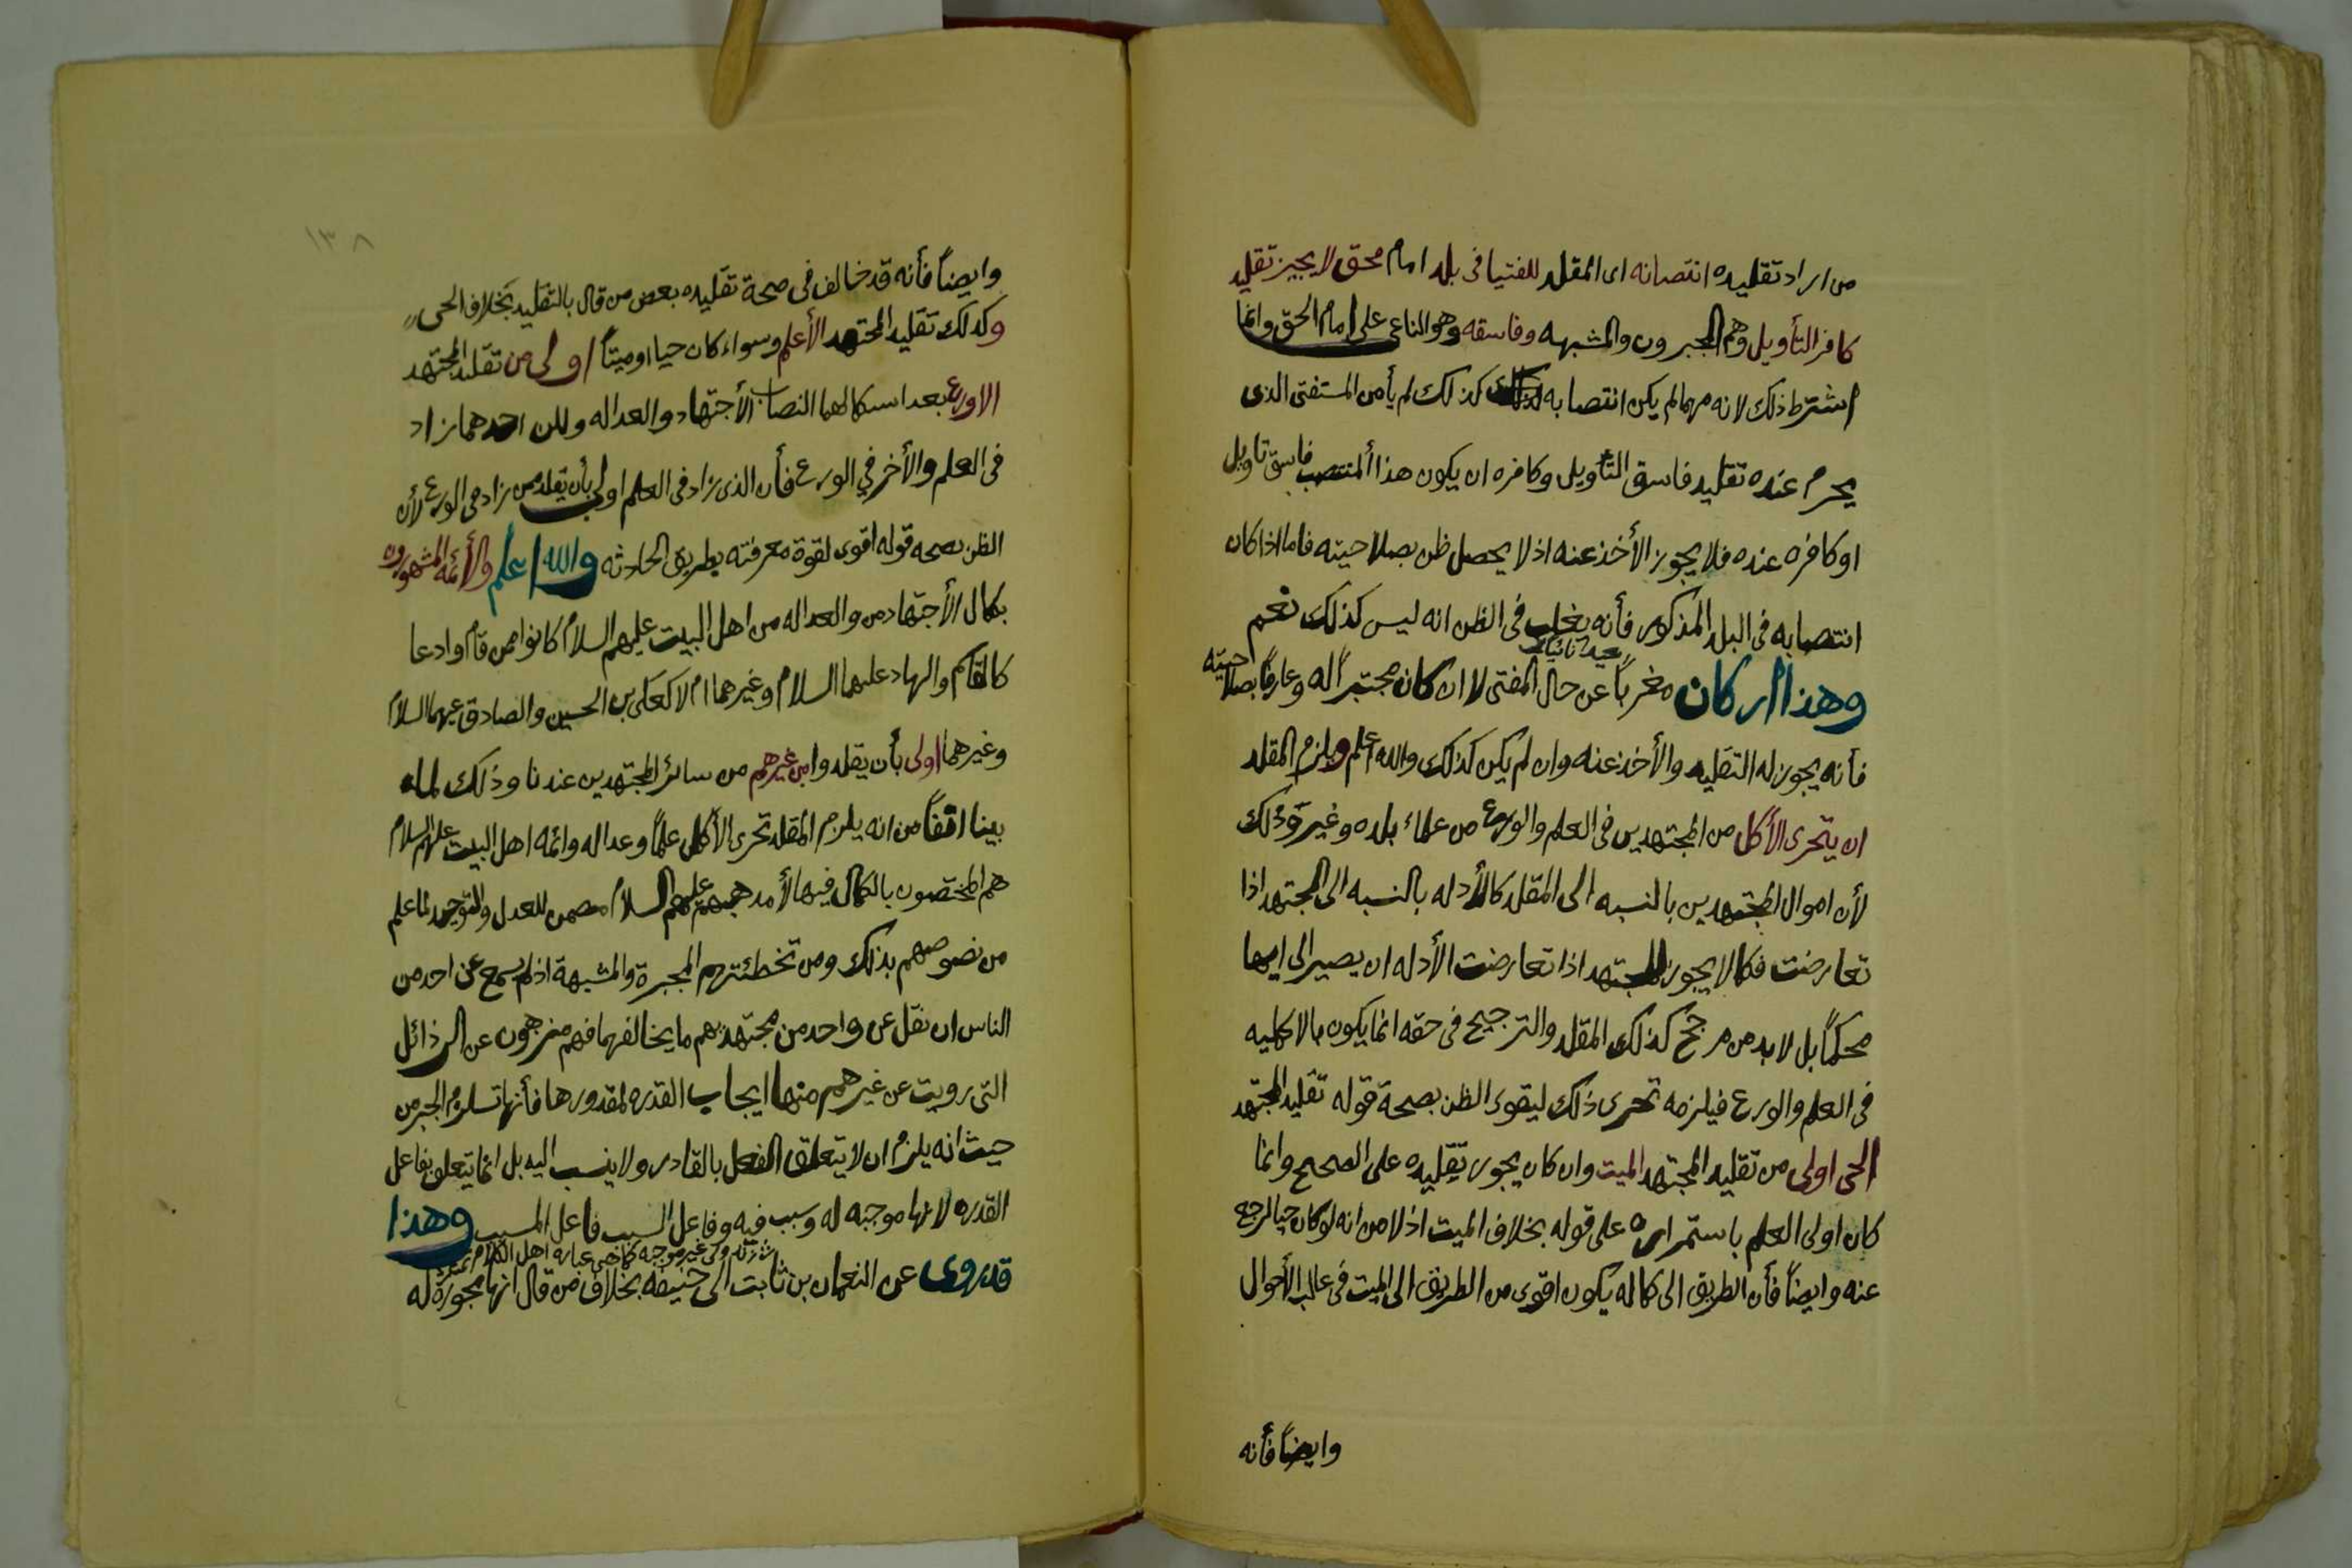 من اراد تقليده انتصابه اى المقلد للفتيا فى بلد امام محق لا يجيز تقليد
كافر التأويل وهم المجبرون والمشبهه وفاسقه وهو الباغى على امام الحق وانما
اشترط ذلك لانه مهما لم يكن انتصابه كذلك لم يأمن المستفتى الذى
يحرم عنده تقليد فاسق التأويل وكافره ان يكون هذا المنتصب فاسق تاويل
او كافره عنده فلا يجوز الأخذ عنه اذ لا يحصل ظن بصلاحيته فاما اذا كان
انتصابه فى البلد المذكور فأنه يغلب فى الظن انه ليس كذلك نعم
وهذا ان كان مغرباً عن حال المفتى لا ان كان مختبراً له وعارفاً بصلاحيته
فأنه يجوز له التقليد والأخذ عنه وان لم يكن كذلك والله اعلم ويلزم المقلد
ان يتحرى الأكمل من المجتهدين فى العلم والورع من علماء بلده وغيره وذلك
لأن اقوال المجتهدين بالنسبه الى المقلد كالأدله بالنسبه الى المجتهد اذا
تعارضت فكما لا يجوز للمجتهد اذا تعارضت الأدله ان يصير الى ايها
محكماً بل لا بد من مرجح كذلك المقلد والترجيح فى حقه انما يكون بالاكمليه
فى العلم والورع فيلزمه تحرى ذلك ليقوى الظن بصحة قوله تقليد المجتهد
الحى اولى من تقليد المجتهد الميت وان كان يجوز تقليده على الصحيح وانما
كان اولى العلم باستمراره على قوله بخلاف الميت اذ لا من انه لو كان حيا لرجع
عنه وايضاً فأن الطريق الى كماله يكون اقوى من الطريق الى الميت فى غالب الأحوال
وايضاً فأنه
١٣٨
وايضاً فأنه قد خالف فى صحة تقليده بعض من قال بالتقليد بخلاف الحى
وكذلك تقليد المجتهد الأعلم وسواء كان حيا او ميتاً اولى من تقليد المجتهد
الاورع بعد استكمالهما النصاب الأجتهاد والعداله ولكن احدهما زاد
فى العلم والأخر في الورع فأن الذى زاد فى العلم اولى بأن يقلد ممن زاد فى الورع لأن
الظن بصحه قوله اقوى لقوة معرفته بطريق الحادثه والله اعلم والأئمه المشهورون
بكمال الأجتهاد من والعداله من اهل البيت عليهم السلام كانوا ممن قام اودعا
كالقاسم والهاد عليهما السلام وغيرهما ام لا كعلى بن الحسين والصادق عليهما السلام
وغيرهما اولى بأن يقلدوا من غيرهم من سائر المجتهدين عندنا وذلك لما
بينا انفاً من انه يلزم المقلد تحرى الأكمل علماً وعداله وائمه اهل البيت عليهم السلام
هم المختصون بالكمال فيها لأ مذهبهم عليهم السلام للعدل والتوحيد لما علم
من نصوصهم بذلك ومن تخطئتهم المجبرة والمشبهة اذ لم يسمع عن احد من
الناس ان نقل عن واحد من مجتهديهم ما يخالفهما فهم منزهون عن الرذائل
التى رويت عن غيرهم منها ايجاب القدره لمقدورها فأنها تستلزم الجبر من
حيث انه يلزم ان لا يتعلق الفعل بالقادر ولا ينسب اليه بل انما يتعلق بفاعل
القدره لانها موجبه له وسبب فيه وفاعل السبب فاعل المسبب وهذا
قد روى عن النعمان بن ثابت ابى حنيفه بخلاف من قال انها مجوزة له